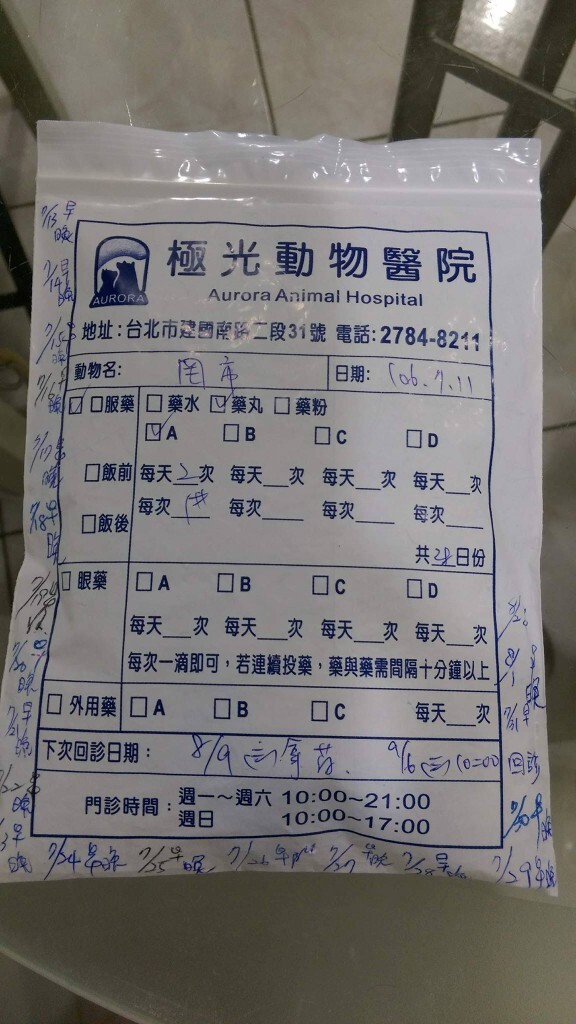 極光動物醫院
AURORA
Aurora Animal Hospital
地址：台北市建國南路二段31號 電話：2784-8211
動物名： 日期：106.7.11
☑ □服藥 □藥水 ☑藥丸 □藥粉
☑A □B □C □D
□飯前 每天2次 每天__次 每天__次 每天__次
□飯後 每次 每次____ 每次____ 每次____
共28日份
□ 眼藥 □A □B □C □D
每天__次 每天__次 每天__次 每天__次
每次一滴即可，若連續投藥，藥與藥需間隔十分鐘以上
□ 外用藥 □A □B □C 每天__次
下次回診日期： 8/9 9/6 10:00 回診
門診時間：週一～週六 10:00~21:00
週日 10:00~17:00
7/13 早
晚
7/14 早
晚
7/15 早
晚
7/17
晚
7/18 早
晚
7/21 早
晚
7/24 早晚 7/25 早晚 7/26 早 7/27 早晚 7/28 早 7/29 早晚
7/30 早
晚
7/31 早